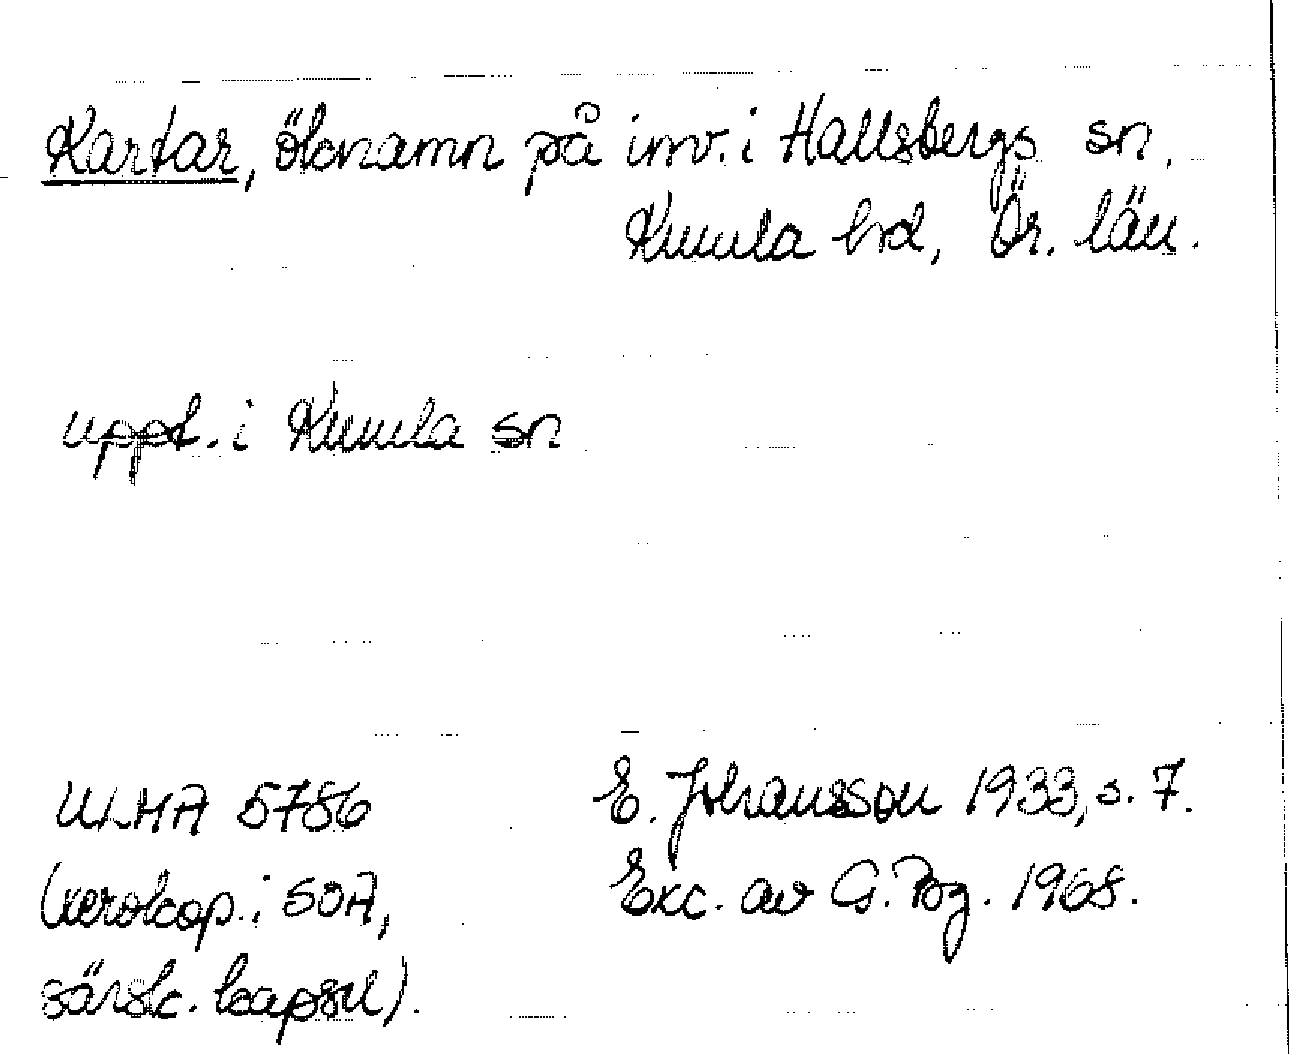 Kartar, öknamn på inv. i Hallsbergs sn,
Kumla hd, Ör. län.
uppt. i Kumla sn
ULMA 5786
(xerokop. i SOA,
särsk. kapsel).
E. Johansson 1933, s. 7.
Exc. av G. Pzg. 1968.